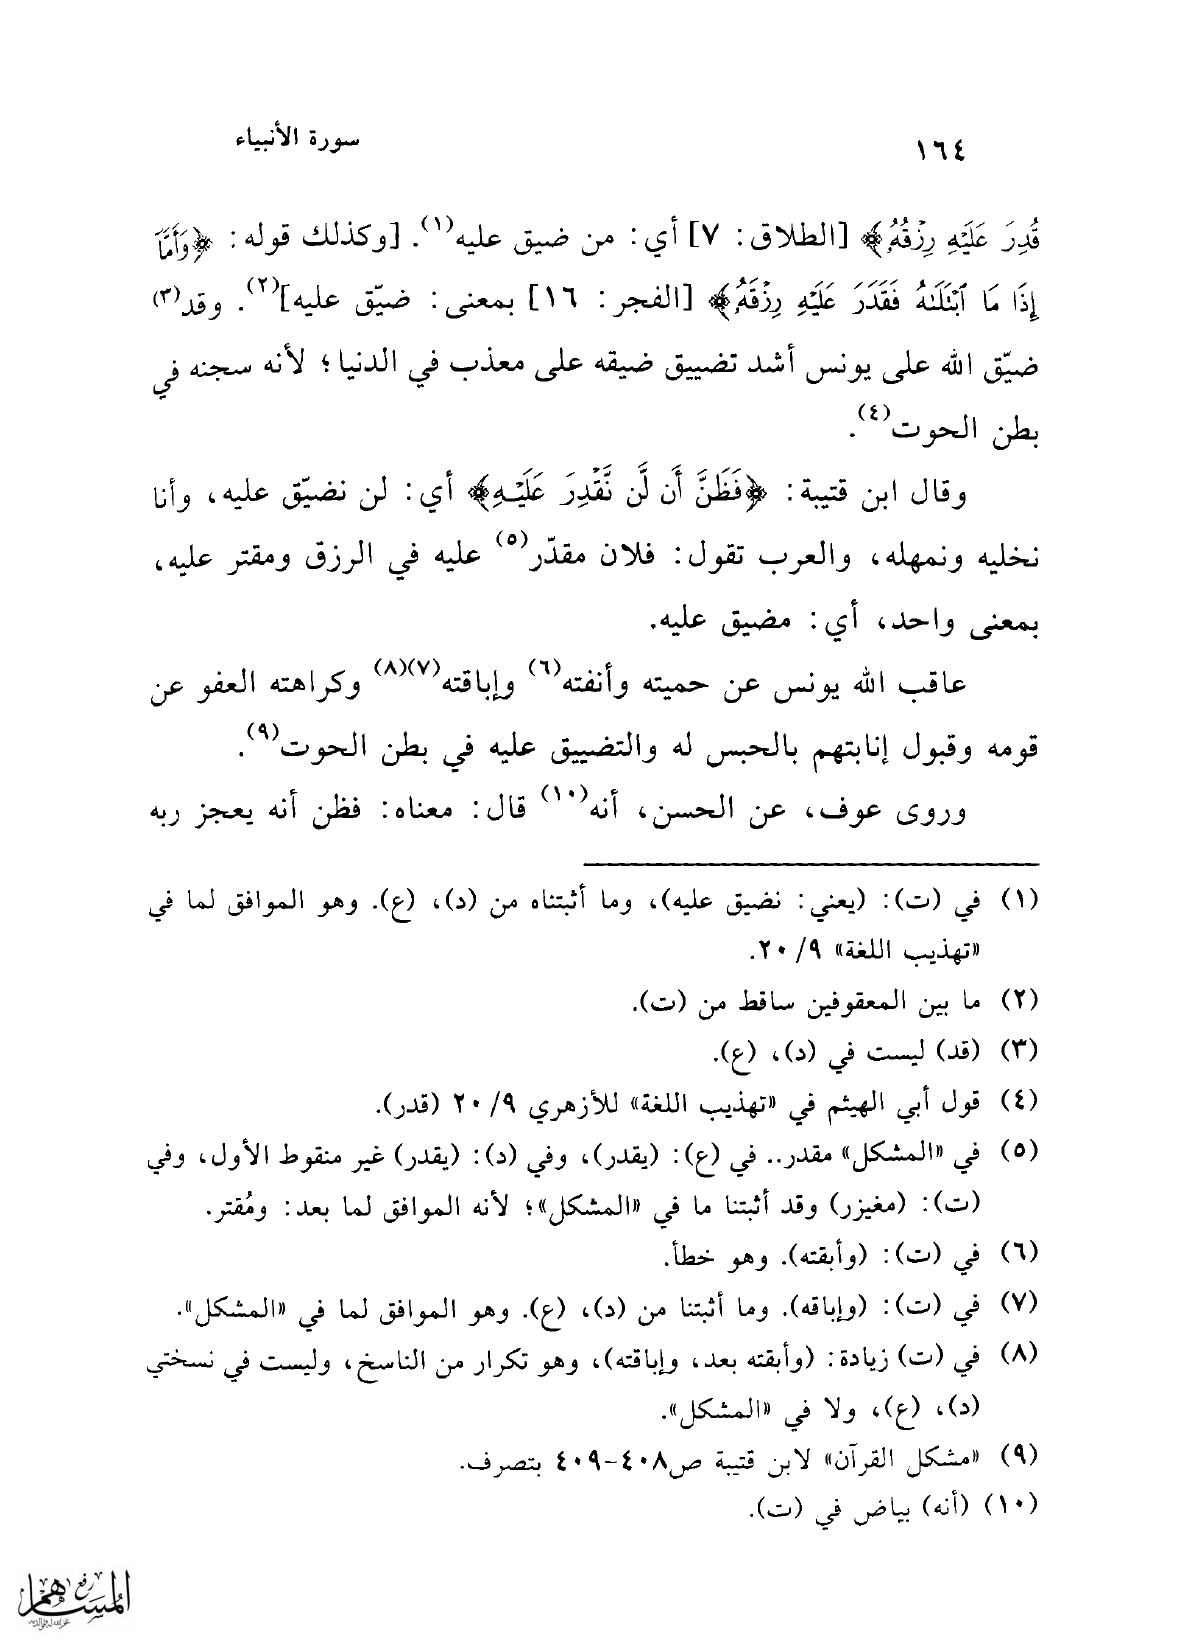 ١٦٤
سورة الأنبياء
قُدِرَ عَلَيْهِ رِزْقُهُ﴾ [الطلاق: ٧] أي: من ضيق عليه(١). [وكذلك قوله: ﴿وَأَمَّا
إِذَا مَا ٱبْتَلَىٰهُ فَقَدَرَ عَلَيْهِ رِزْقَهُ﴾ [الفجر: ١٦] بمعنى: ضيّق عليه](٢). وقد(٣)
ضيّق الله على يونس أشد تضييق ضيقه على معذب في الدنيا؛ لأنه سجنه في
بطن الحوت(٤).
وقال ابن قتيبة: ﴿فَظَنَّ أَن لَّن نَّقْدِرَ عَلَيْهِ﴾ أي: لن نضيّق عليه، وأنا
نخليه ونمهله، والعرب تقول: فلان مقدّر(٥) عليه في الرزق ومقتر عليه،
بمعنى واحد، أي: مضيق عليه.
عاقب الله يونس عن حميته وأنفته(٦) وإباقته(٧)(٨) وكراهته العفو عن
قومه وقبول إنابتهم بالحبس له والتضييق عليه في بطن الحوت(٩).
وروى عوف، عن الحسن، أنه(١٠) قال: معناه: فظن أنه يعجز ربه
(١) في (ت): (يعني: نضيق عليه)، وما أثبتناه من (د)، (ع). وهو الموافق لما في
«تهذيب اللغة» ٩/ ٢٠.
(٢) ما بين المعقوفين ساقط من (ت).
(٣) (قد) ليست في (د)، (ع).
(٤) قول أبي الهيثم في «تهذيب اللغة» للأزهري ٩/ ٢٠ (قدر).
(٥) في «المشكل» مقدر.. في (ع): (يقدر)، وفي (د): (يقدر) غير منقوط الأول، وفي
(ت): (مغيزر) وقد أثبتنا ما في «المشكل»؛ لأنه الموافق لما بعد: ومُقتر.
(٦) في (ت): (وأبقته). وهو خطأ.
(٧) في (ت): (وإباقه). وما أثبتنا من (د)، (ع). وهو الموافق لما في «المشكل».
(٨) في (ت) زيادة: (وأبقته بعد، وإباقته)، وهو تكرار من الناسخ، وليست في نسختي
(د)، (ع)، ولا في «المشكل».
(٩) «مشكل القرآن» لابن قتيبة ص٤٠٨-٤٠٩ بتصرف.
(١٠) (أنه) بياض في (ت).
رفع
المساهم